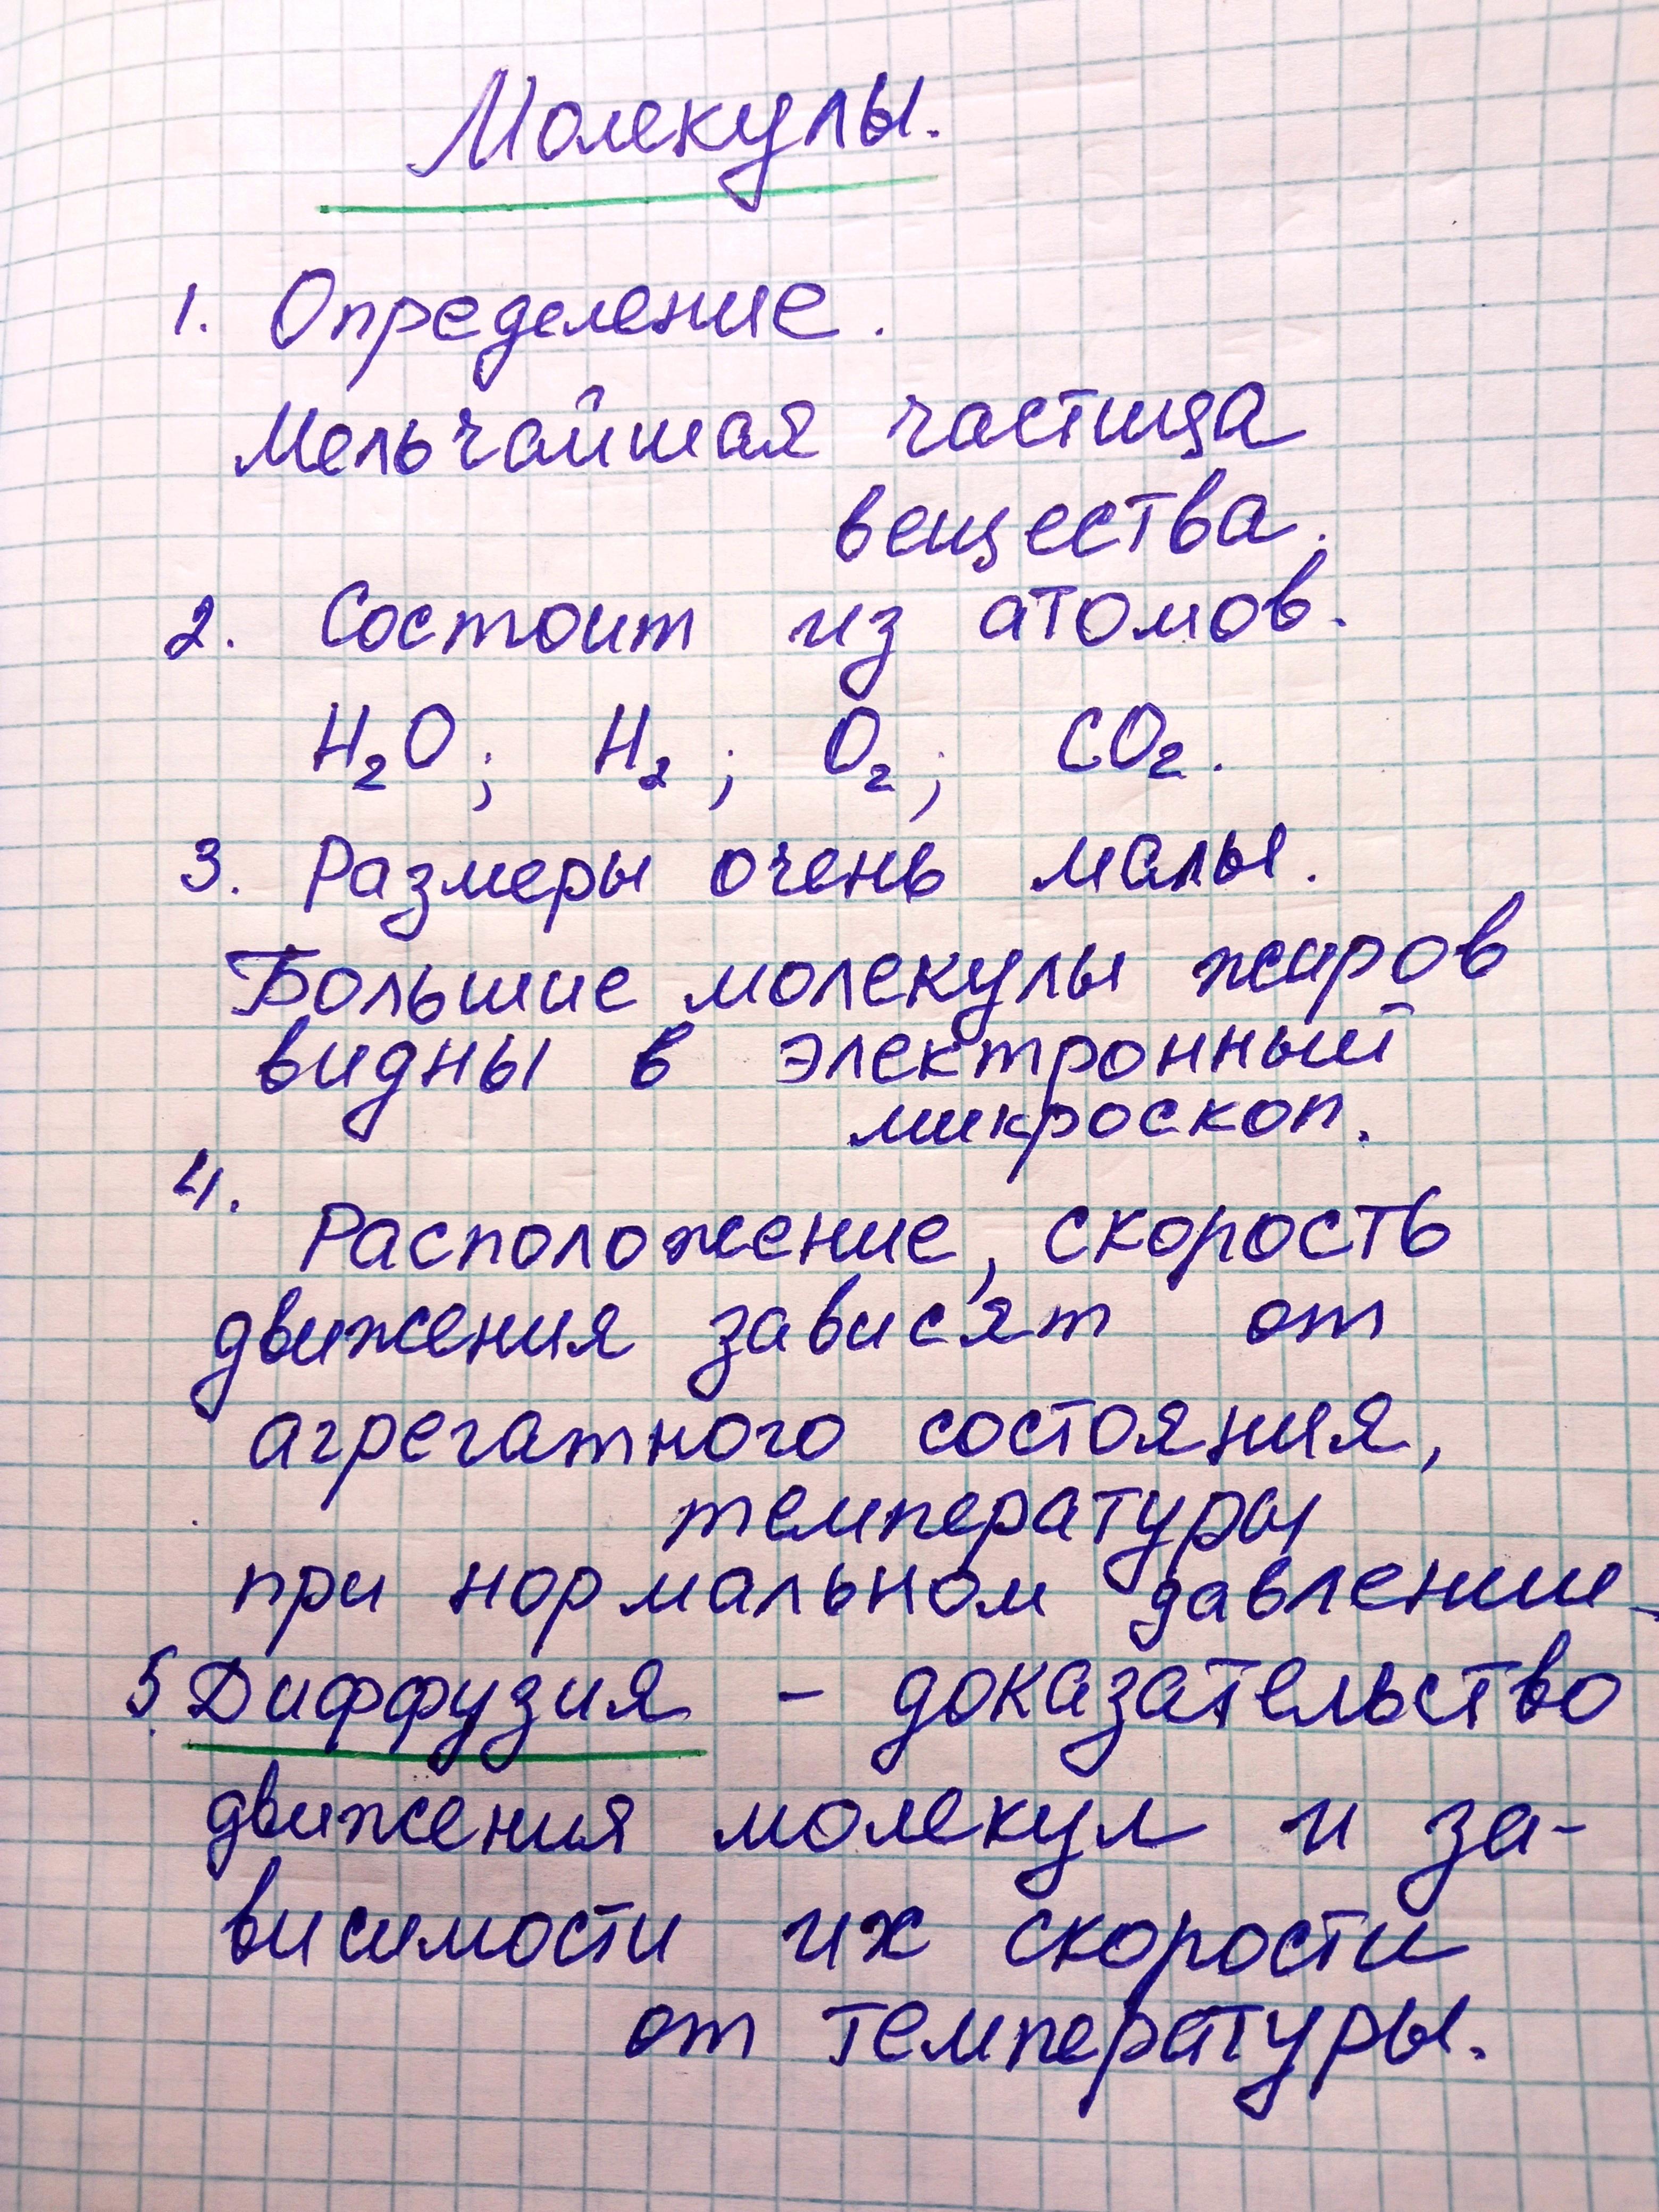 Молекулы.
1. Определение.
Мельчайшая частица
вещества.
2. Состоит из атомов.
H₂O; H₂; O₂; CO₂.
3. Размеры очень малы.
Большие молекулы жиров
видны в электронный
микроскоп.
4.
Расположение, скорость
движения зависят от
агрегатного состояния,
температуры
при нормальном давлении.
5. Диффузия - доказательство
движения молекул и за-
висимости их скорости
от температуры.